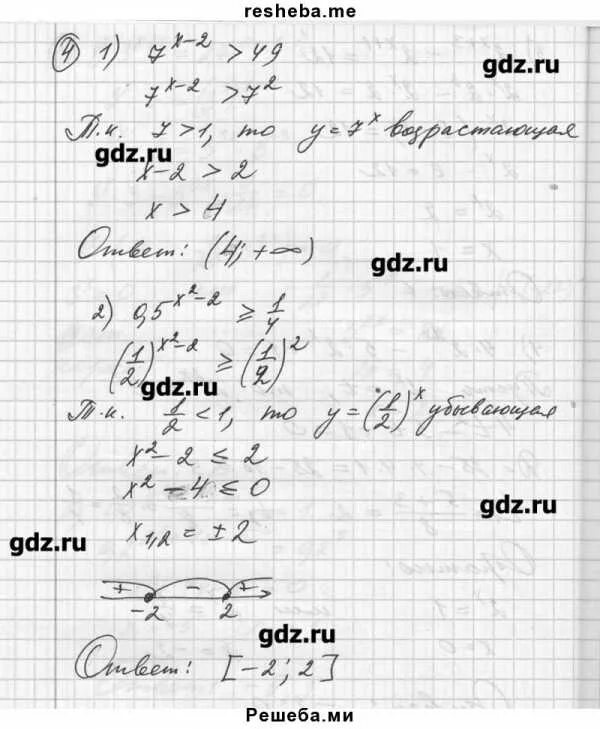 resheba.me
④ 1) 7^{x-2} > 49
gdz.ru
7^{x-2} > 7^2
Т.к. 7 > 1, то y = 7^x возрастающая
gdz.ru
x - 2 > 2
x > 4
gdz.ru
Ответ: (4; +∞)
2) 0,5^{x^2-2} ≥ 1/4
(1/2)^{x^2-2} ≥ (1/2)^2
gdz.ru
Т.к. 1/2 < 1, то y = (1/2)^x убывающая
x^2 - 2 ≤ 2
x^2 - 4 ≤ 0
gdz.ru
x_{1,2} = ± 2
gdz.ru
+ - +
-2 2
gdz.ru
Ответ: [-2; 2]
Решеба.ми